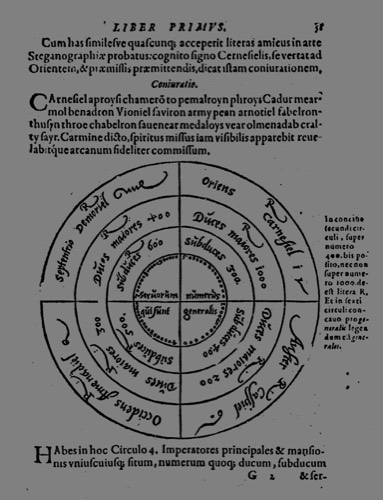 LIBER PRIMVS.
Cum has similesve quascunq; acceperit literas amicus in arte
Steganographiæ probatus: cognito signo Carnesielis, se vertat ad
Orientem, & præmissis præmittendis, dicat istam coniurationem,
Coniuratio.
CArnesiel aproysi chamerō to pemalroyn phroys Cadur mear-
mol benadron Vioniel saviron army pean arnotiel fabelron-
thusyn throe chabelron savenear medaloys vear olmenadab cral-
ty sayr. Carmine dicto, spiritus missus iam visibilis apparebit reve-
labitque arcanum fideliter commissum.
Septentrio Demoriel
Oriens
Carnesiel
Duces maiores 400
Duces maiores 1000
subduces 600
subduces 300.
servorum
numerus
qui sunt
generalis
subduces 500.
subduces 400
Duces maiores 300
Duces maiores 200
Occidens Amenadiel
Caspiel
In concino
secundi cir-
culi, super
numero
400. bis po-
sito, nec non
super nume-
ro 1000. de-
est litera R,
Et in sexti
circuli con-
cauo pro ge-
neralis legen-
dum est gene-
rales.
HAbes in hoc Circulo 4. Imperatores principales & mansio-
nis uniuscuiusq; situm, numerum quoq; ducum, subducum
G 2 & ser-